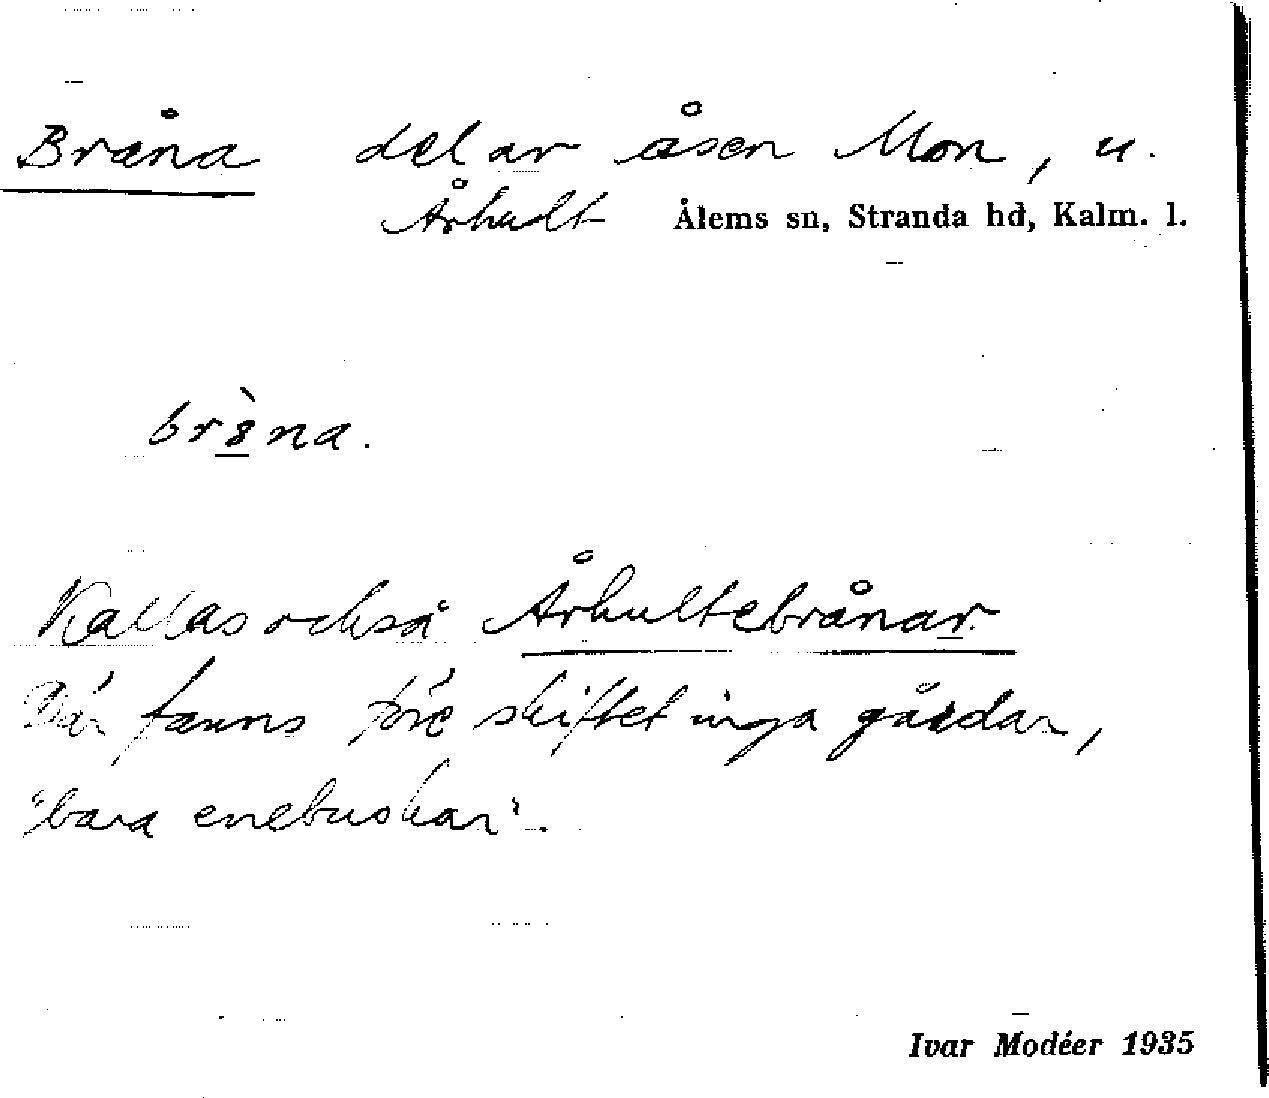 Bråna del av åsen Mon, u.
Århult Ålems sn, Stranda hd, Kalm. l.
br8̀na.
Kallas också Århultebrånar.
Där fanns före skiftet inga gårdar,
"bara enebuskar".
Ivar Modéer 1935